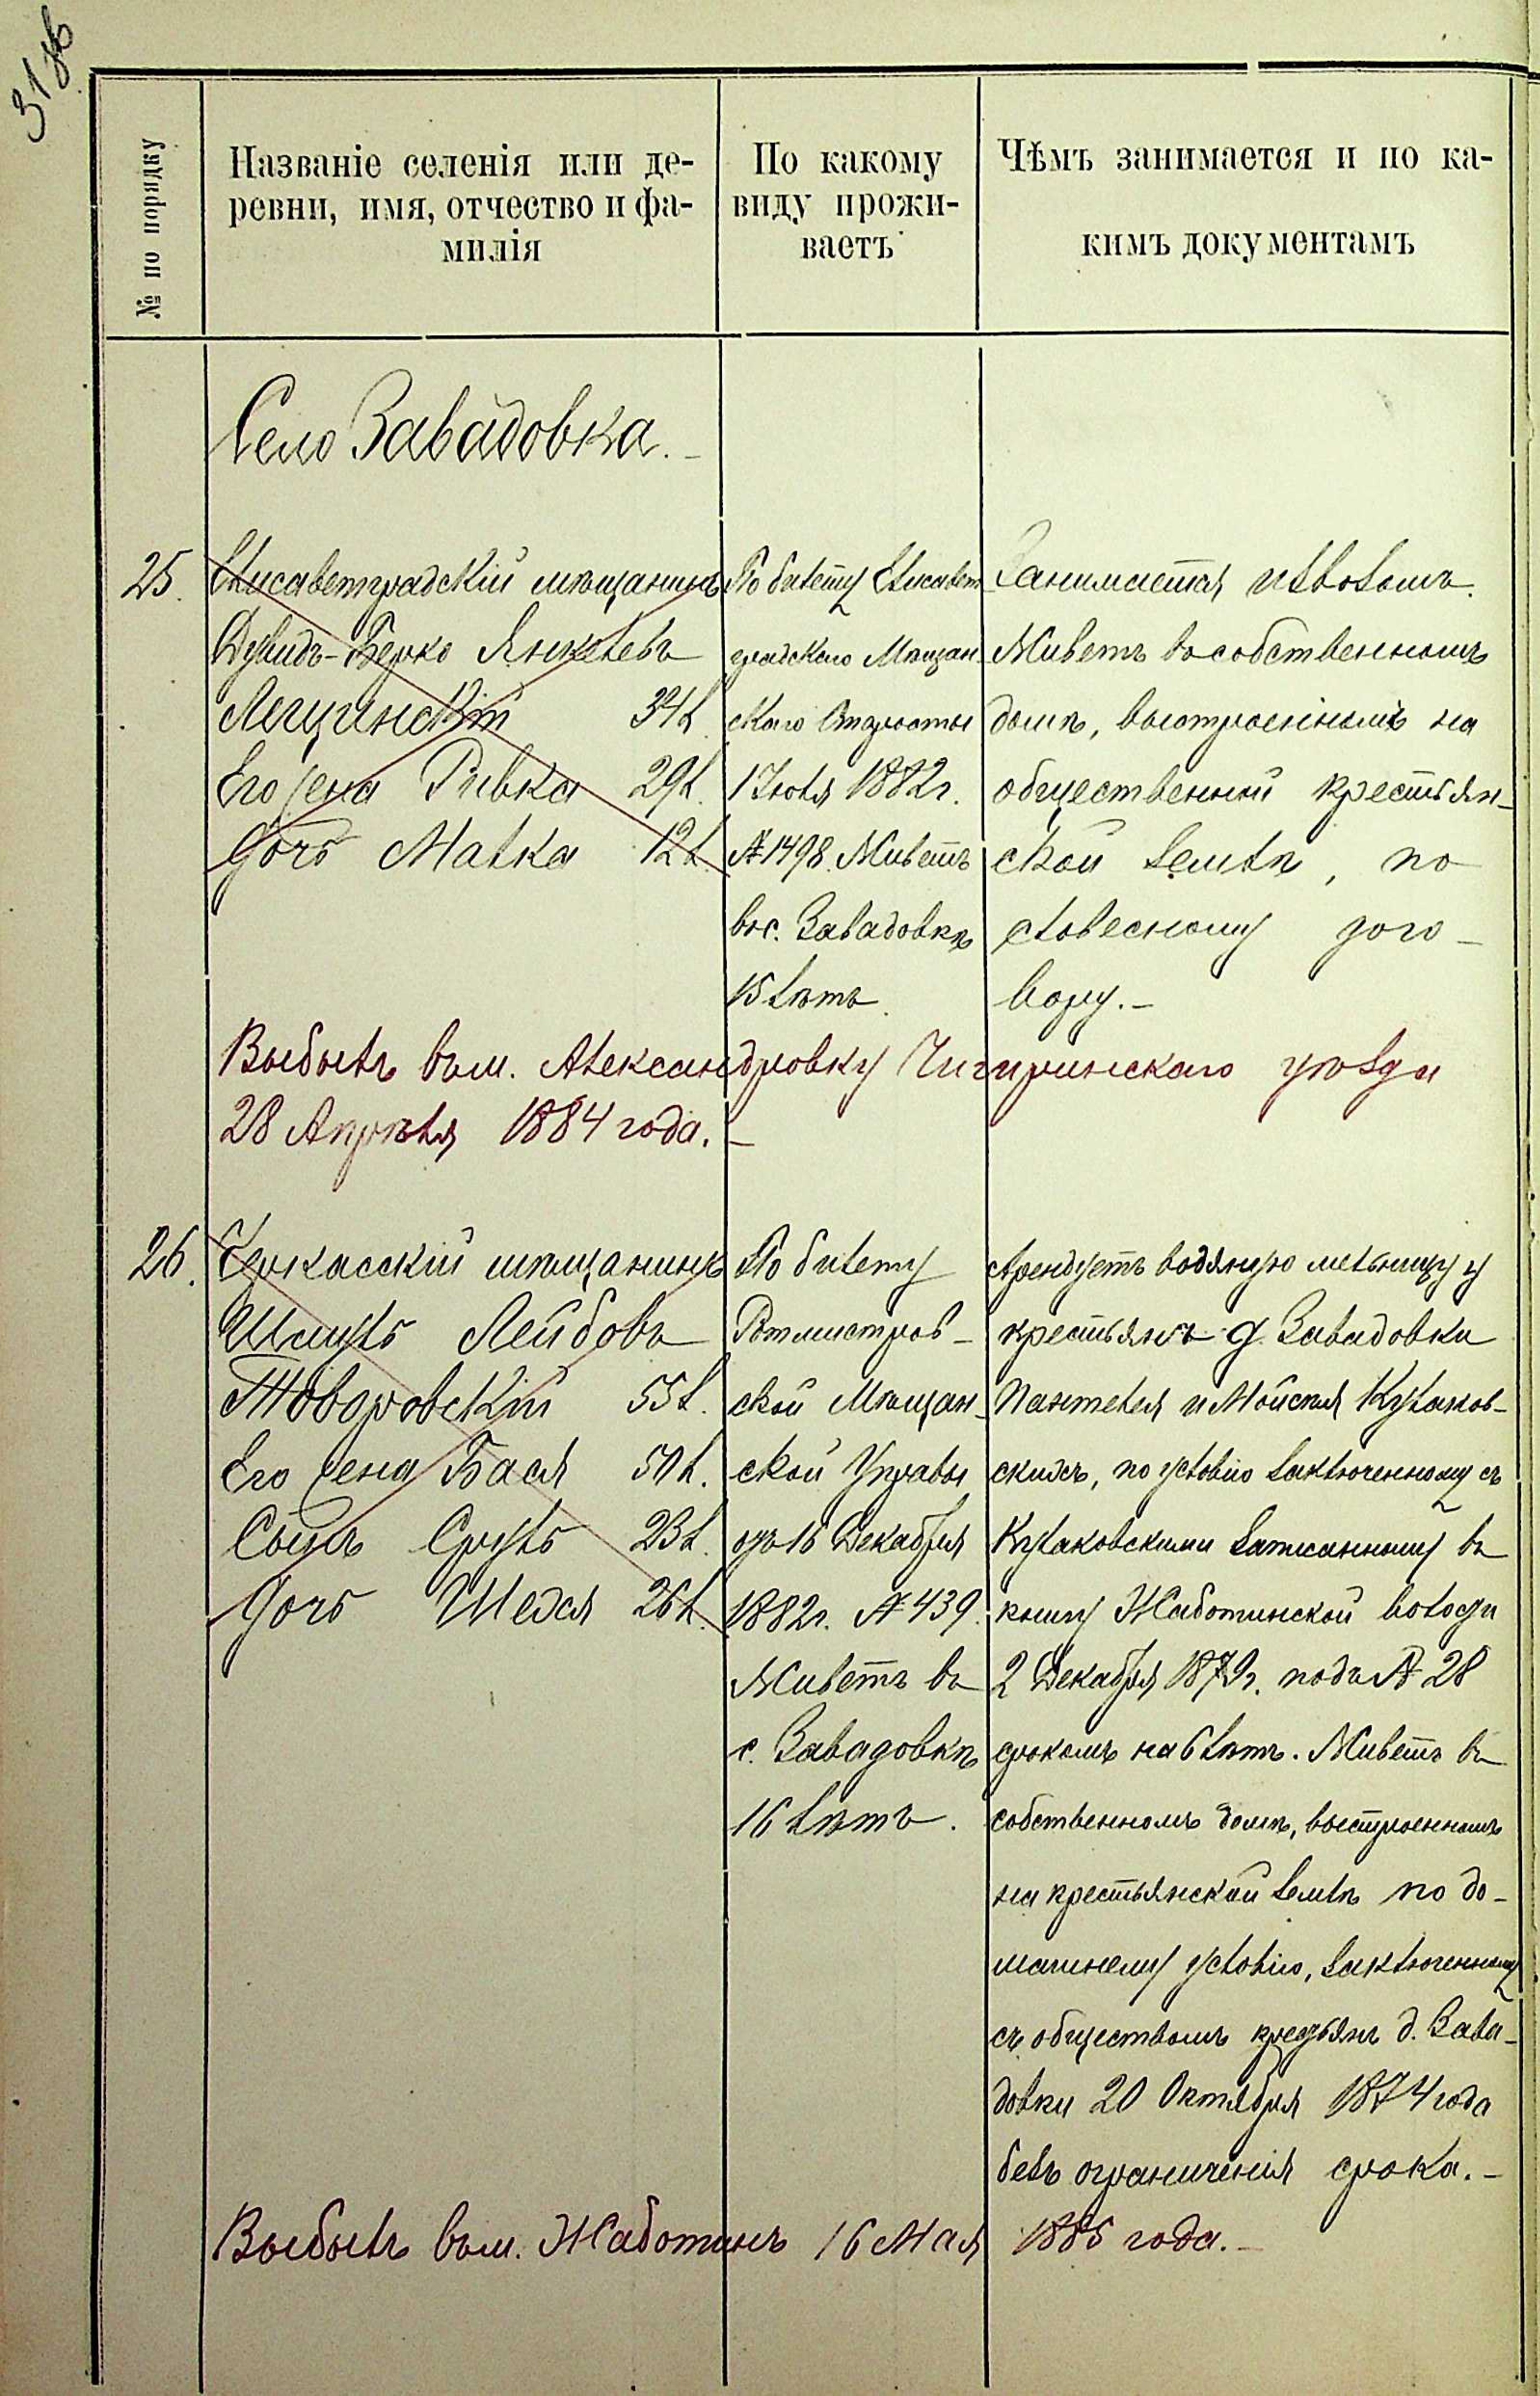 31 об
№ по порядку
Названіе селенія или де-
ревни, имя, отчество и фа-
милія
По какому
виду прожи-
ваетъ
Чѣмъ занимается и по ка-
кимъ документамъ
Село Завадовка.
25.
Елисаветградскій мѣщанинъ
Дувидъ-Берко Янкелевъ
Лещинскій 34 л.
Его жена Ривка 29 л.
Дочь Малка 12 л.
По билету Елисавет-
градскаго Мѣщан-
скаго Старосты
1 Іюля 1882 г.
№ 1498. Живетъ
въ с. Завадовкѣ
15 лѣтъ.
Занимается извозомъ.
Живетъ въ собственномъ
домѣ, выстроенномъ на
общественной крестьян-
ской землѣ, по
словесному дого-
вору.-
Выбылъ въ м. Александровку Чигиринскаго уѣзда
28 Апрѣля 1884 года.-
26.
Черкасскій мѣщанинъ
Шмуль Лейбовъ
Товаровскій 55 л.
Его жена Бася 50 л.
Сынъ Сруль 23 л.
Дочь Шейдя 26 л.
По билету
Ротмистров-
ской Мѣщан-
ской Управы
отъ 16 Декабря
1882 г. № 439.
Живетъ въ
с. Завадовкѣ
16 лѣтъ.
Арендуетъ водяную мельницу у
крестьянъ д. Завадовки
Пантелея и Мойсея Кулаков-
скихъ, по условію заключенному съ
Кулаковскими записанному въ
книгу Жаботинской волости
2 Декабря 1879 г. подъ № 28
срокомъ на 6 лѣтъ. Живетъ въ
собственномъ домѣ, выстроенномъ
на крестьянской землѣ по до-
машнему условію, заключенному
съ обществомъ крестьянъ д. Зава-
довки 20 Октября 1874 года
безъ ограниченія срока.-
Выбылъ въ м. Жаботинъ 16 Мая 1885 года.-